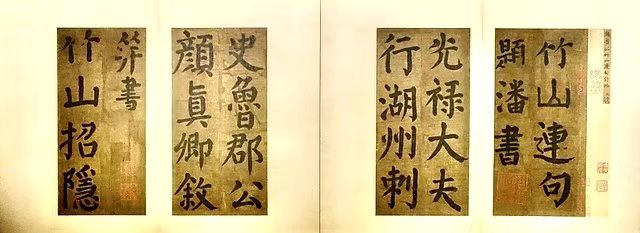 竹山連句
題潘書
光禄大夫
行湖州刺
史魯郡公
顔真卿敘
并書
竹山招隠